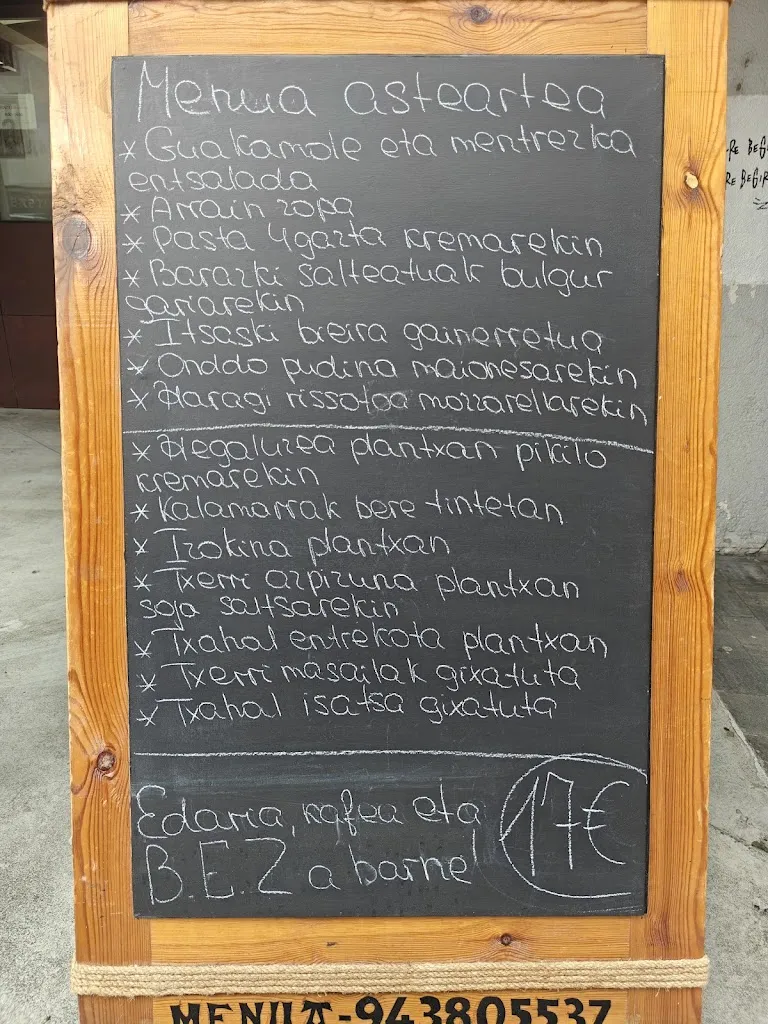 Menua asteartea
* Guakamole eta mentrezka
entsalada
* Arrain zopa
* Pasta 4 gazta kremarekin
* Barazki salteatuak bulgur
gariarekin
* Itsaski bieira gainerretua
* Onddo pudina maionesarekin
* Haragi rissotoa mozzarellarekin
* Hegaluzea plantxan pikilo
kremarekin
* Kalamarrak bere tintetan
* Izokina plantxan
* Txerri azpizuna plantxan
soja saltsarekin
* Txahal entrekota plantxan
* Txerri masailak gixatuta
* Txahal isatsa gixatuta
Edaria, kafea eta
B.E.Z a barne
17€
MENUA-943805537